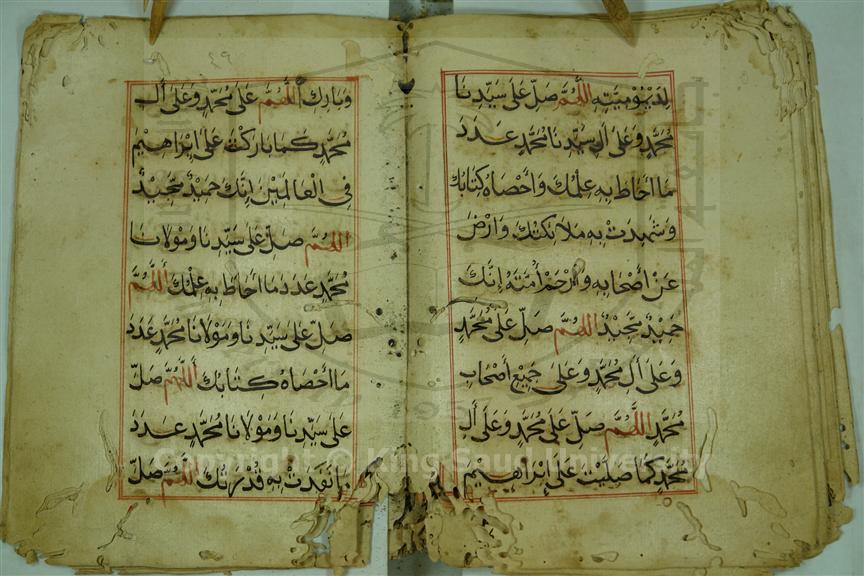 لِدَيْمُوْمِيَّتِهِ اَللّٰهُمَّ صَلِّ عَلَى سَيِّدِنَا
مُحَمَّدٍ وَعَلَى اٰلِ سَيِّدِنَا مُحَمَّدٍ عَدَدَ
مَا اَحَاطَ بِهِ عِلْمُكَ وَاَحْصَاهُ كِتَابُكَ
وَشَهِدَتْ بِهِ مَلَائِكَتُكَ وَارْضَ
عَنْ اَصْحَابِهِ وَارْحَمْ اُمَّتَهُ اِنَّكَ
حَمِيْدٌ مَّجِيْدٌ اَللّٰهُمَّ صَلِّ عَلَى مُحَمَّدٍ
وَعَلَى اٰلِ مُحَمَّدٍ وَعَلَى جَمِيْعِ اَصْحَابِ
مُحَمَّدٍ اَللّٰهُمَّ صَلِّ عَلَى مُحَمَّدٍ وَعَلَى اٰلِ
مُحَمَّدٍ كَمَا صَلَّيْتَ عَلَى اِبْرَاهِيْمَ
٤٩
وَبَارِكْ اَللّٰهُمَّ عَلَى مُحَمَّدٍ وَعَلَى اٰلِ
مُحَمَّدٍ كَمَا بَارَكْتَ عَلَى اِبْرَاهِيْمَ
فِى الْعَالَمِيْنَ اِنَّكَ حَمِيْدٌ مَّجِيْدٌ
اَللّٰهُمَّ صَلِّ عَلَى سَيِّدِنَا وَمَوْلَانَا
مُحَمَّدٍ عَدَدَ مَا اَحَاطَ بِهِ عِلْمُكَ اَللّٰهُمَّ
صَلِّ عَلَى سَيِّدِنَا وَمَوْلَانَا مُحَمَّدٍ عَدَدَ
مَا اَحْصَاهُ كِتَابُكَ اَللّٰهُمَّ صَلِّ
عَلَى سَيِّدِنَا وَمَوْلَانَا مُحَمَّدٍ عَدَدَ
مَا نَفَذَتْ بِهِ قُدْرَتُكَ اَللّٰهُمَّ صَلِّ
Copyright © King Saud University